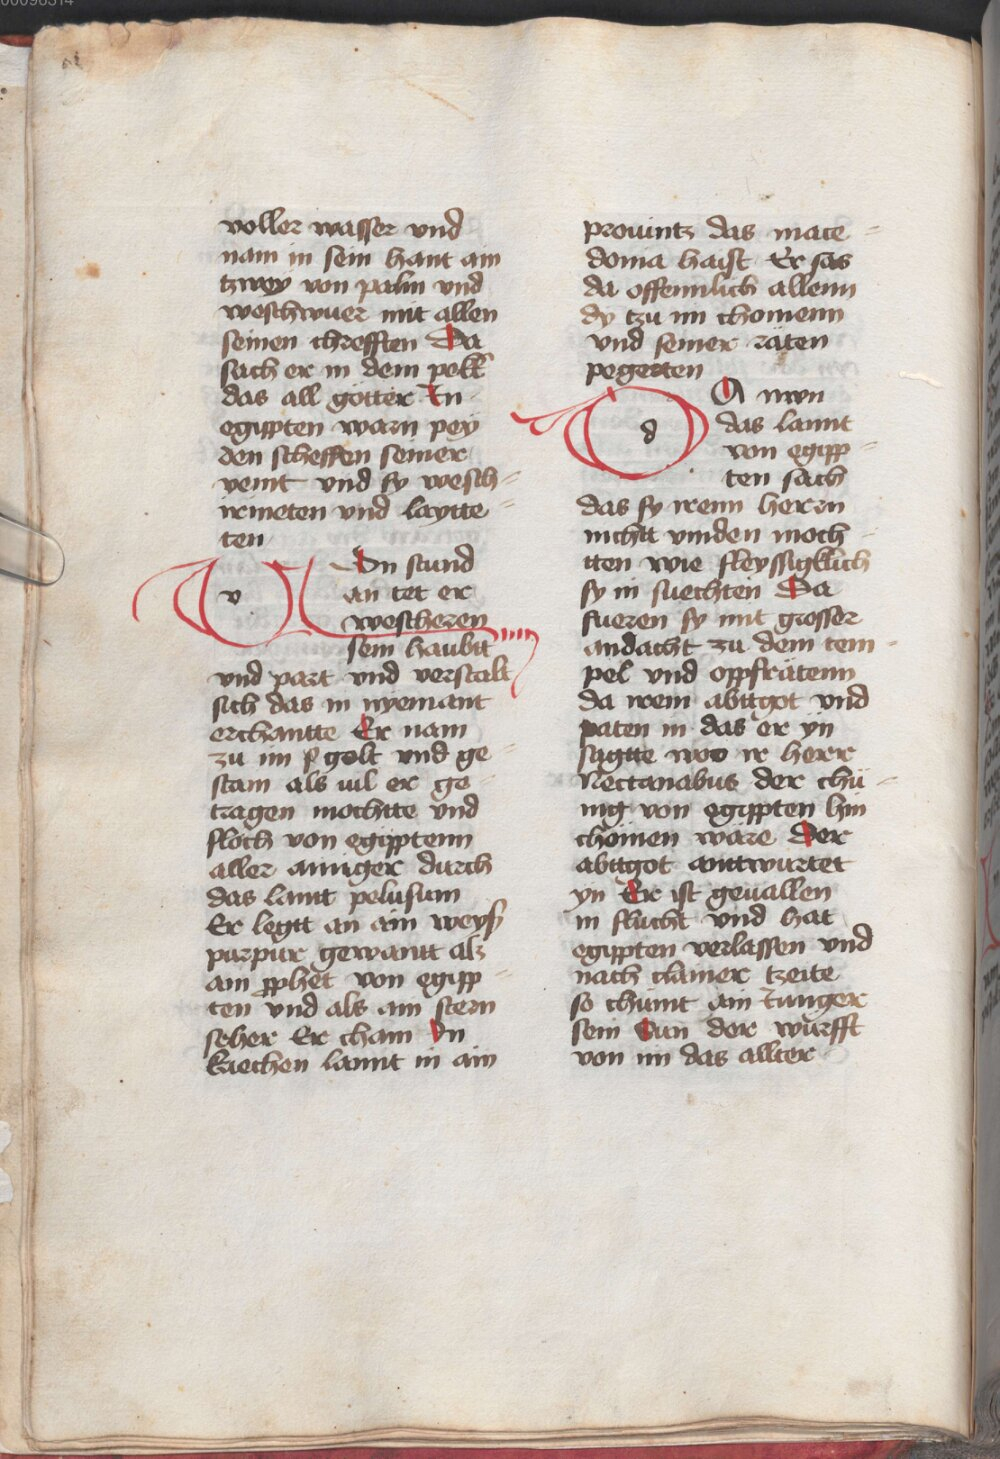 voller wasser vnd
nam in sein hant ain
tzwey von palm vnd
weschwuer mit allen
seinen chrefften Da
sach er in dem pekk
das all götter In
egippten warn pey
den scheffen seiner
veint vnd sy wesch
irmeten vnd laytte
ten
Vn stund
v an tet er
wescheren
sein haubtt
vnd part vnd verstalt
sich das in nyemant
erchantte Er nam
zu im golt vnd ge
stain als vil er ge
tragen mochtte vnd
floch von egipptenn
aller ainiger durch
das lannt pelusium
Er legtt an ain weys
purpur gewantt als
ain prophet von egipp
ten vnd als ain stern
seher Er cham In
kriechen lannt in ain
prouintz das mace
donia haist Er sas
da offennlich allenn
dy tzu im chomenn
vnd seiner räten
pegerten
d A nwn
das lannt
von egipp
ten sach
das sy irenn herrn
nichtt vinden moch
tten wie fleyssigklich
sy in suechten Da
fueren sy mit grosser
andacht zu dem tem
pel vnd oppfrätenn
da irem abttgot vnd
paten in das er yn
sagtte wo ir herr
Nectanabus der chü
nig von egippten hin
chömen wäre Der
abttgot anttwurtet
yn Er ist geuallen
in flucht vnd hat
egippten verlassen vnd
nach clainer tzeite
so chümt ain Iunger
sein Sun der würfft
von im das allter